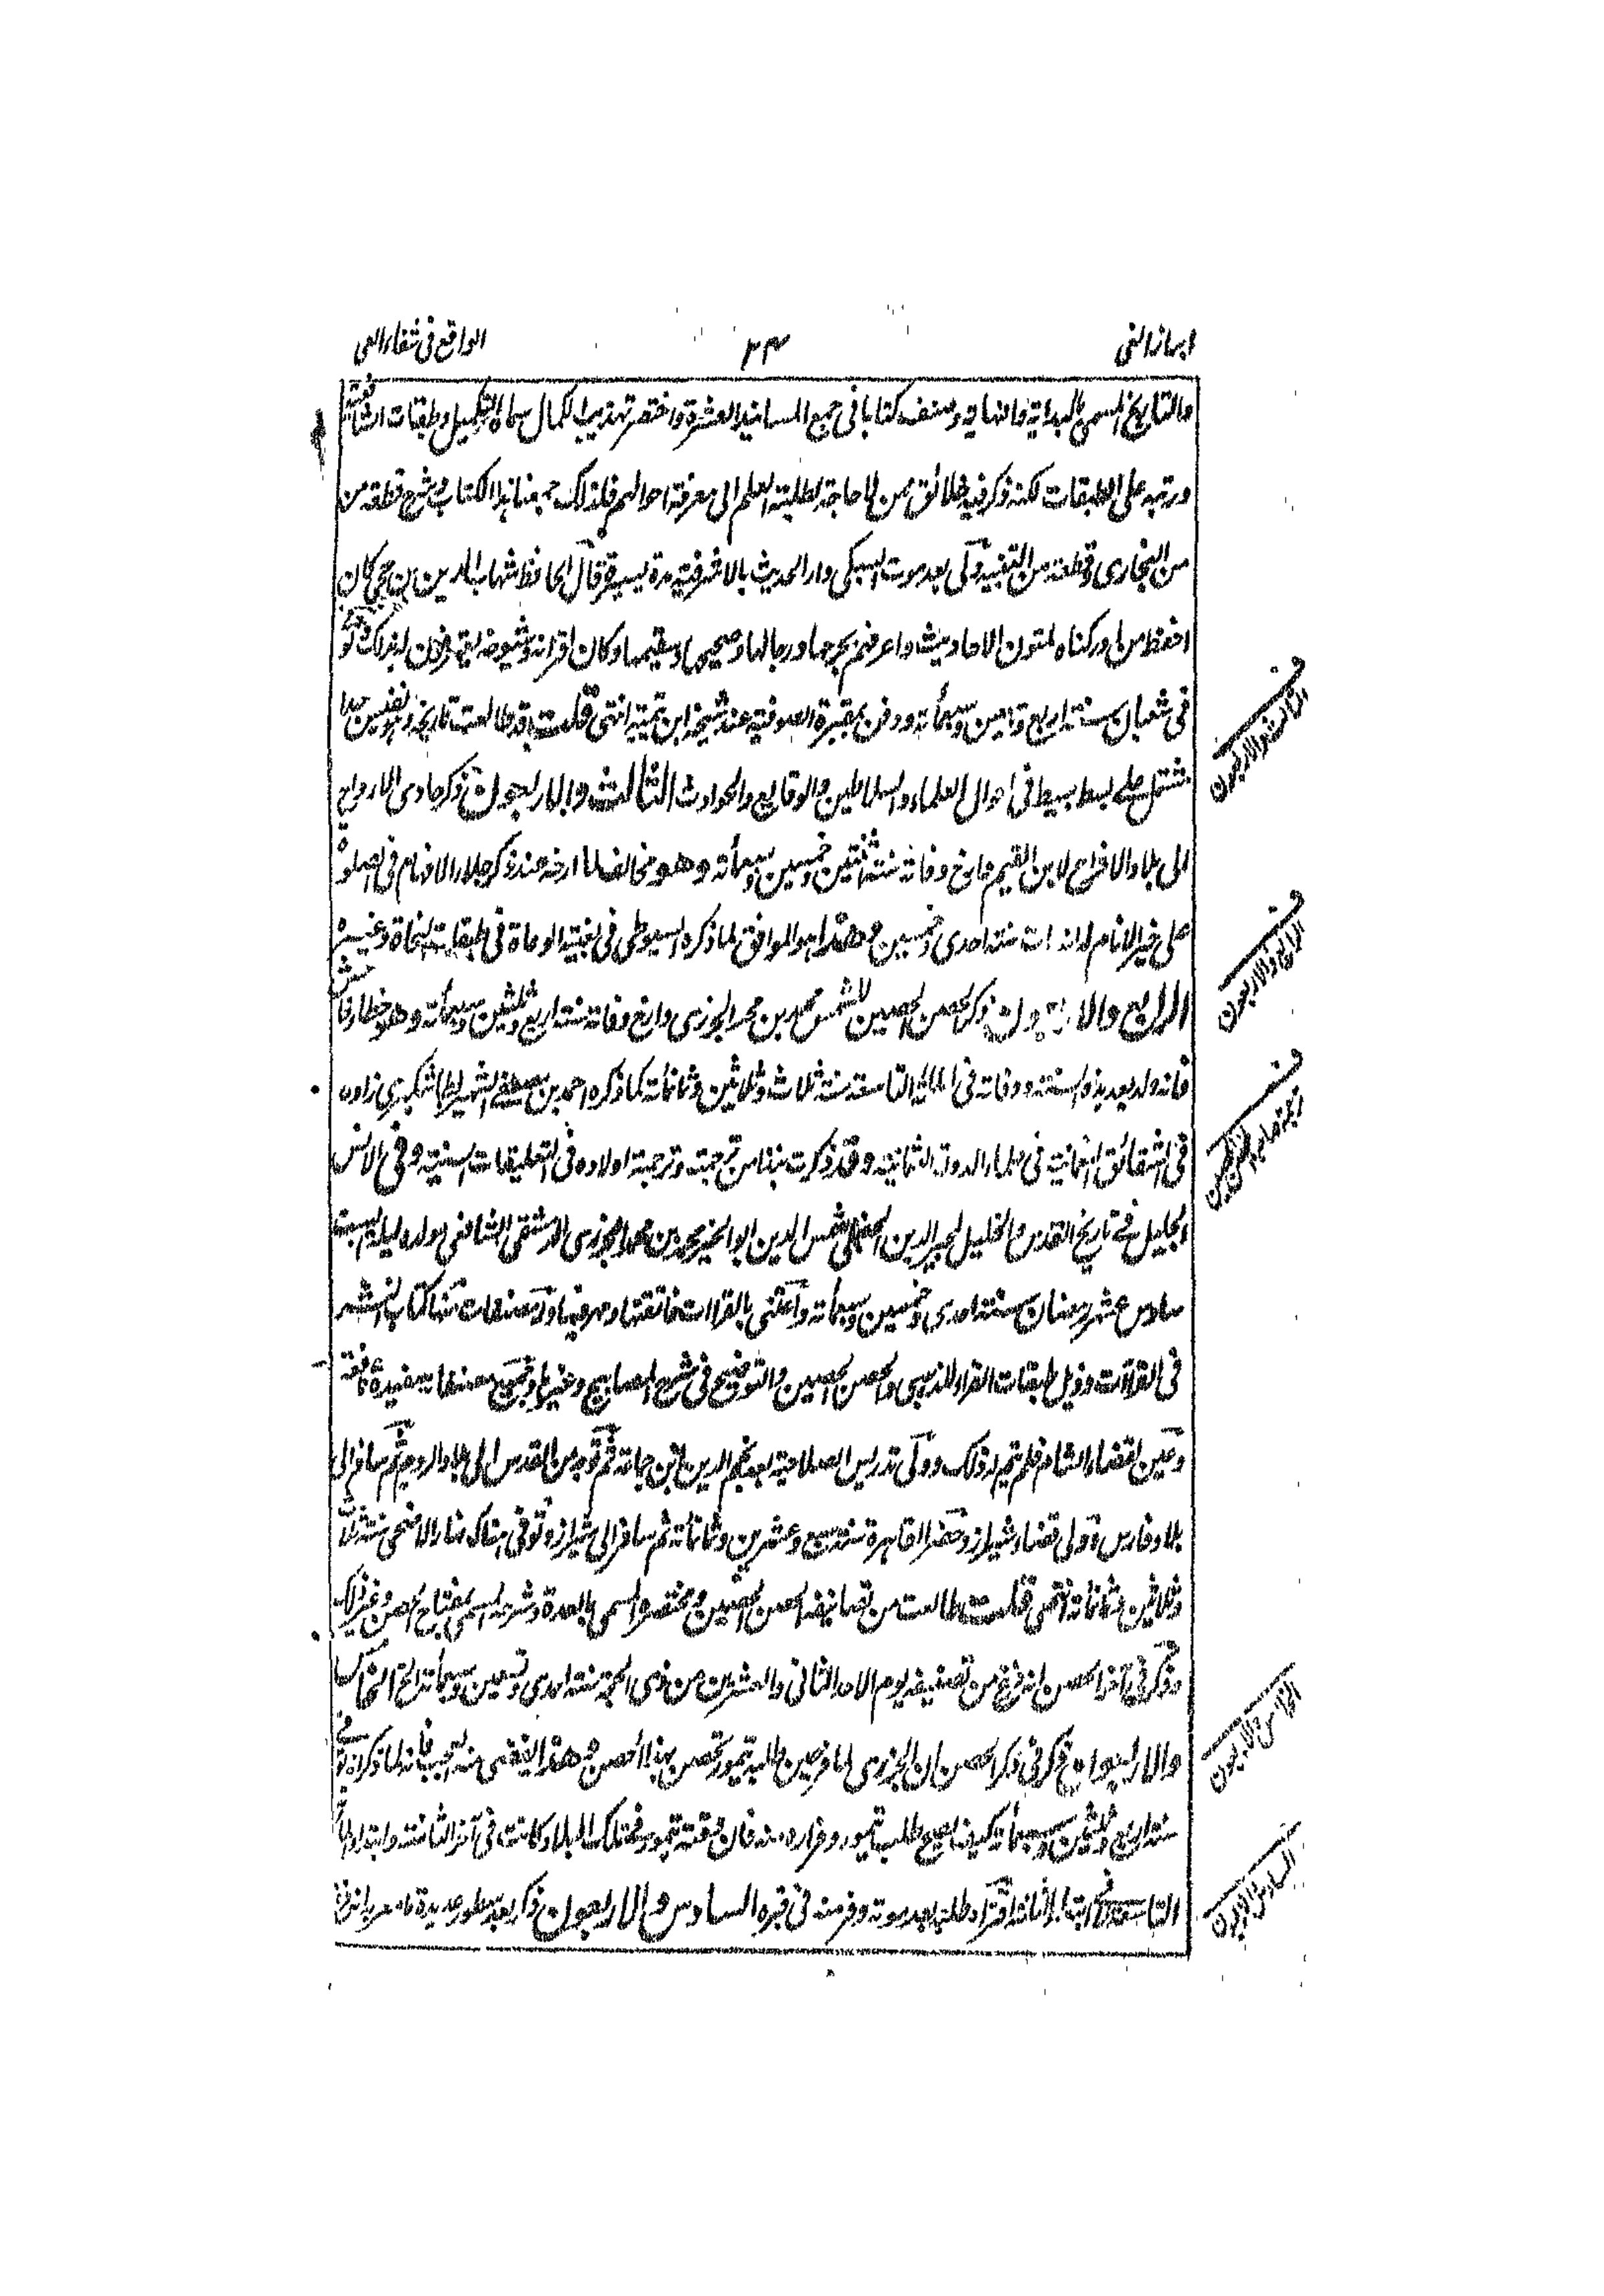 ابراز الغى
٢٤
الواقع فى شفاء العى
والتاريخ المسمى بالبداية والنهاية وصنف كتابا فى جمع المسانيد العشرة واختصر تهذيب الكمال سماه التكميل وطبقات الشافعية
ورتبه على الطبقات لكنه ذكر فيه خلائق ممن لا حاجة لطلبة العلم الى معرفة احوالهم فلذلك جمعنا هذا الكتاب وشرح قطعة من
من البخارى وقطعة من التنبيه وولى بعد موت السبكى دار الحديث بالاشرفية مدة يسيرة قال الحافظ شهاب الدين بن حجى كان
احفظ من ادركناه لمتون الاحاديث واعرفهم بجرحها ورجالها وصحيحها وسقيمها وكان اقرانه وشيوخه يعترفون له بذلك توفى
فى شعبان سنة اربع وسبعين وسبعمأة ودفن بمقبرة الصوفية عند شيخه ابن تيمية انتهى قلت قد طالعت تاريخه وهو نفيس جدا
مشتمل على بسط بسيط فى احوال العلماء والسلاطين والوقايع والحوادث الثالث والاربعون ذكر حادى الارواح
الى بلاد الافراح لابن القيم وارخ وفاته سنة اثنتين وخمسين وسبعمأة وهو مخالف لما ارخه عند ذكر جلاء الافهام فى الصلوة
على خير الانام انه مات سنة احدى وخمسين وهذا هو الموافق لما ذكره السيوطى فى بغية الوعاة فى طبقات النحاة وغيره
الرابع والاربعون ذكر الحصن الحصين للشمس محمد بن محمد الجزرى وارخ وفاته سنة اربع وثلثين وسبعمأة وهو خطأ فاحش
فانه ولد بعد هذه السنة ووفاته فى المائة التاسعة سنة ثلاث وثلاثين وثمانمأة كما ذكره احمد بن مصطفى الشهير بطاشكبرى زاده
فى الشقائق النعمانية فى علماء الدولة العثمانية وقد ذكرت نبذا من ترجمته وترجمة اولاده فى التعليقات السنية وفى الانس
الجليل فى تاريخ القدس والخليل لمجير الدين الحنبلى شمس الدين ابو الخير محمد بن محمد الجزرى الدمشقى الشافعى مولده ليلة السبت
سادس عشر رمضان سنة احدى وخمسين وسبعمأة واعتنى بالقراات فاتقنها ومهر فيها وله مصنفات منها كتاب النشر
فى القراات وذيل طبقات القراء للذهبى والحصن الحصين والتوضيح فى شرح المصابيح وغيرها وجميع مصنفاته مفيدة نافعة
وعين لقضاء الشام فلم يتم له ذلك وولى تدريس الصلاحية بعد نجم الدين ابن جماعة ثم توجه من القدس الى بلاد الروم ثم سافر الى
بلاد فارس وولى قضاء شيراز وحضر القاهرة سنة سبع وعشرين وثمانمأة ثم سافر الى شيراز وتوفى هناك نهار الاضحى سنة ثلاث
وثلاثين وثمانمأة انتهى قلت طالعت من تصانيفه الحصن الحصين ومختصره المسمى بالعدة وشرحه المسمى بمفتاح الحصن وغير ذلك
وذكر فى آخر الحصن انه فرغ من تصنيفه يوم الاحد الثانى والعشرين من ذى الحجة سنة احدى وتسعين وسبعمأة الخ الخامس
والاربعون ذكر فى ذكر الحصن ان الجزرى لما فر حين طلبه تيمور تحصن بهذا الحصن وهذا يقضى منه العجب فانه لما ذكر انه توفى
سنة اربع وثلثين وسبعمأة كيف يصح طلب تيمور وفراره منه فان وقعة تيمور فى تلك البلاد كانت فى آخر الثامنة وابتداء المأة
التاسعة
السادس والاربعون ذكر بعد سطور عديدة
الثالث والاربعون
الرابع والاربعون
ترجمة صاحب الحصن الحصين
الخامس والاربعون
السادس والاربعون